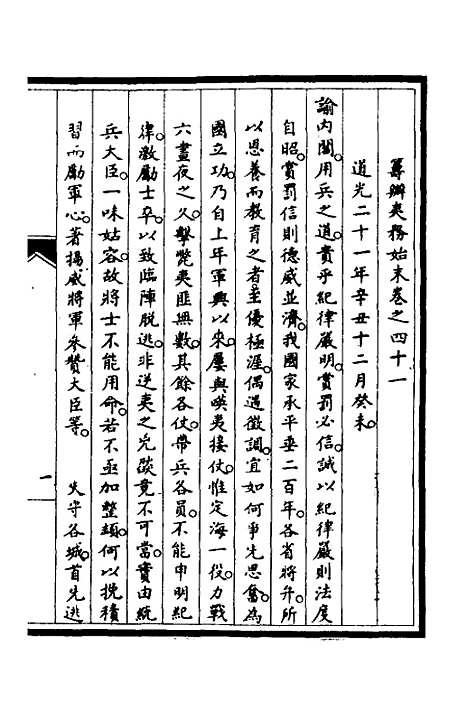 籌辦夷務始末卷之四十一
道光二十一年辛丑十二月癸未。
諭內閣。用兵之道。貴乎紀律嚴明。賞罰必信。誠以紀律嚴則法度
自昭。賞罰信則德威並濟。我國家承平垂二百年。各省將弁。所
以恩養而教育之者。至優極渥。偶遇徵調。宜如何爭先思奮。為
國立功。乃自上年軍興以來。屢與𠸄夷接仗。惟定海一役。力戰
六晝夜之久。擊斃夷匪無數。其餘各仗。帶兵各員。不能申明紀
律。激勵士卒。以致臨陣脫逃。非逆夷之兇燄竟不可當。實由統
兵大臣。一味姑容。故將士不能用命。若不亟加整頓。何以挽積
習而勵軍心。著揚威將軍參贊大臣等。　失守各城。首先逃
一